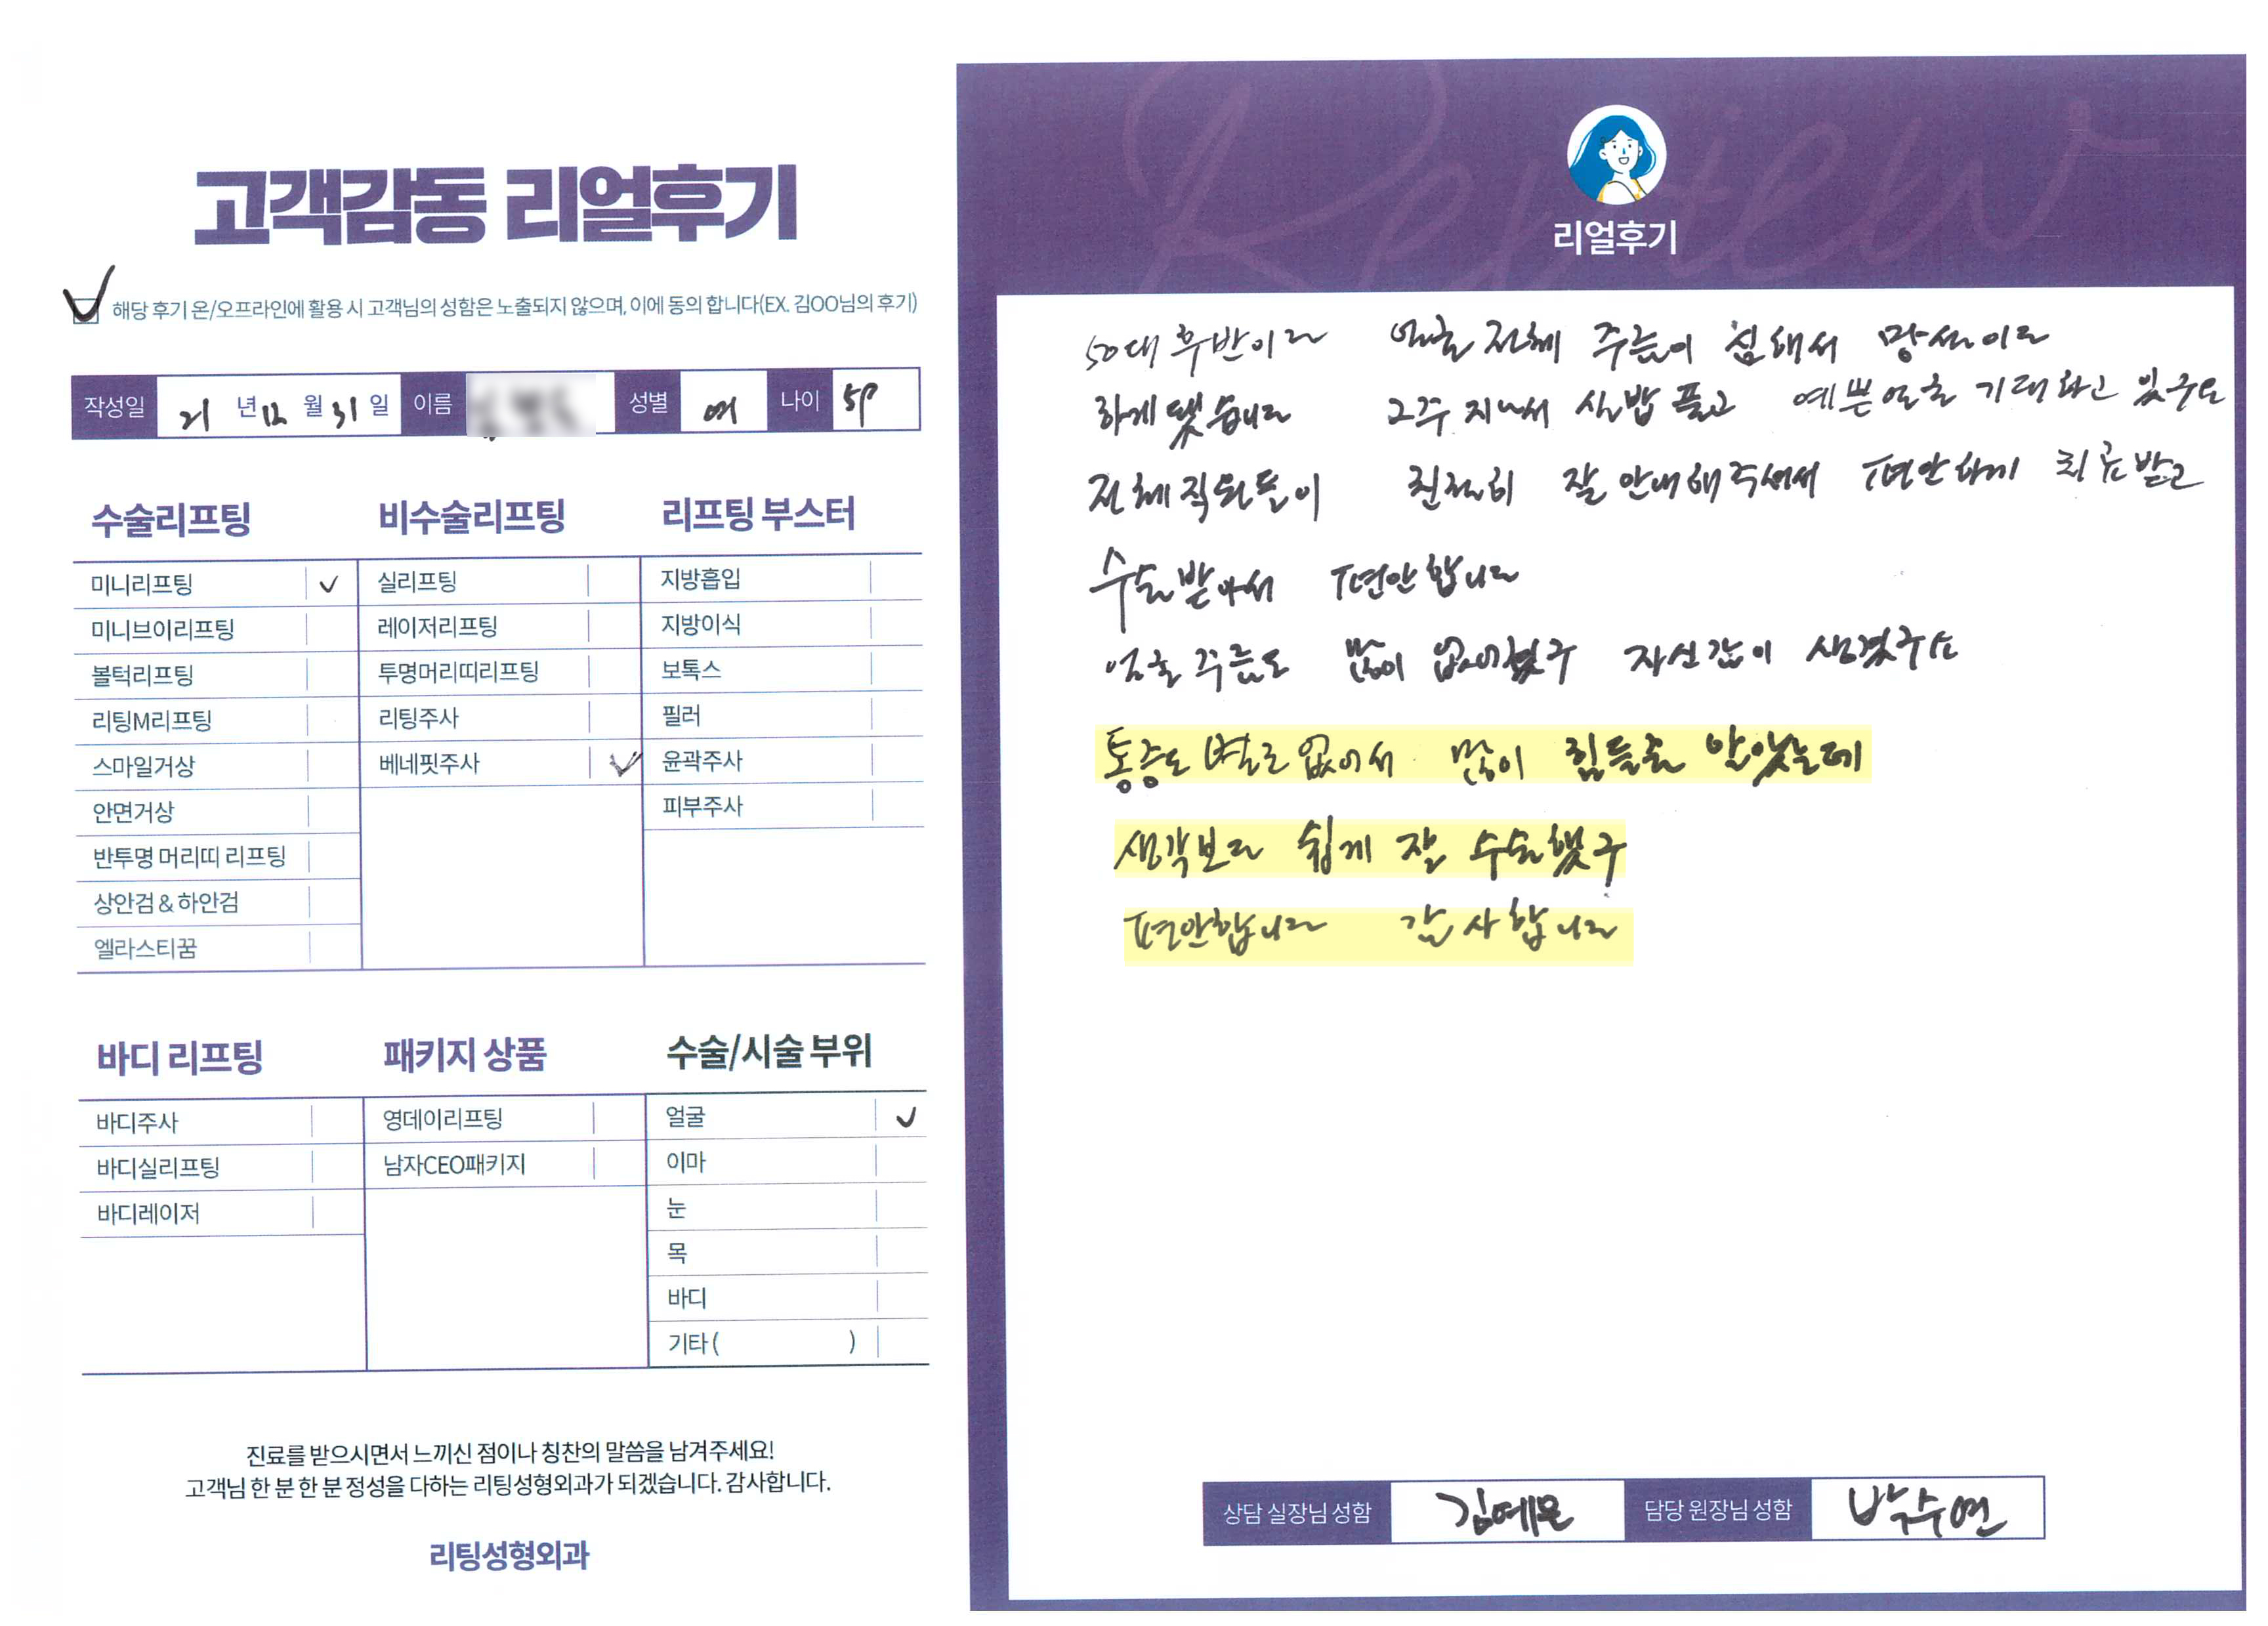 고객감동 리얼후기
해당 후기 온/오프라인에 활용 시 고객님의 성함은 노출되지 않으며, 이에 동의 합니다(EX. 김OO님의 후기)
작성일 21 년 12 월 31 일 이름 성별 여 나이 59
수술리프팅
미니리프팅 ✓
미니브이리프팅
볼턱리프팅
리팅M리프팅
스마일거상
안면거상
반투명 머리띠 리프팅
상안검 & 하안검
엘라스티꿈
비수술리프팅
실리프팅
레이저리프팅
투명머리띠리프팅
리팅주사
베네핏주사 ✓
리프팅 부스터
지방흡입
지방이식
보톡스
필러
윤곽주사
피부주사
바디 리프팅
바디주사
바디실리프팅
바디레이저
패키지 상품
영데이리프팅
남자CEO패키지
수술/시술 부위
얼굴 ✓
이마
눈
목
바디
기타 ( )
진료를 받으시면서 느끼신 점이나 칭찬의 말씀을 남겨주세요!
고객님 한 분 한 분 정성을 다하는 리팅성형외과가 되겠습니다. 감사합니다.
리팅성형외과
Review
리얼후기
50대 후반이라 얼굴 전체 주름이 심해서 망설이다
하게됐습니다 2주 지나서 실밥 풀고 예쁜얼굴 기대하고 있구요
전체 직원들이 친절히 잘 안내해주셔서 편안하게 치료받고
수술받아서 편안합니다
얼굴 주름도 많이 없어졌구 자신감이 생겼구요
통증도 별로 없어서 많이 힘들줄 알았는데
생각보다 쉽게 잘 수술했구
편안합니다 감사합니다
상담 실장님 성함 김예은 담당 원장님 성함 박수연